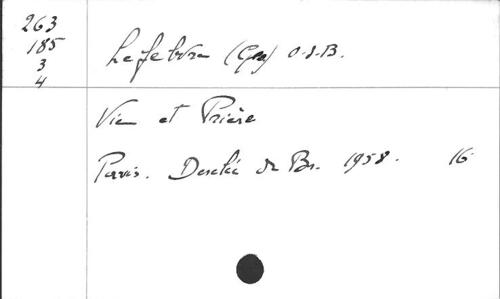 263
185
3
4
Lefebvre (Geo) O.S.B.
Vie et Prière
Paris. Desclée de Br. 1958. 16